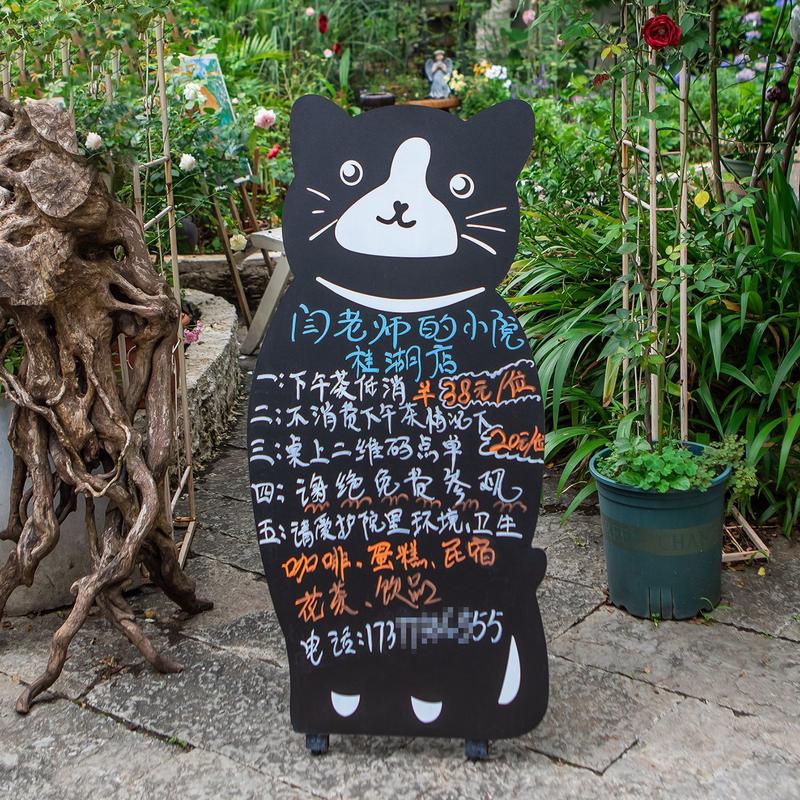 闫老师的小院
桂湖店
一:下午茶低消 半38元/位
二:不消费下午茶情况下
20元/位
三:桌上二维码点单
四:谢绝免费参观
五:请爱护院里环境、卫生
咖啡、蛋糕、民宿
花茶、饮品
电话:173 55